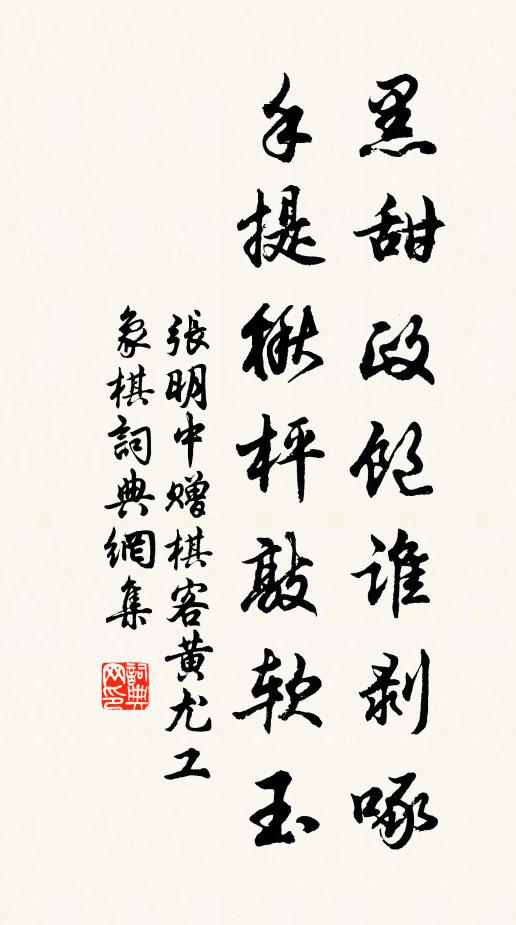 黑甜政饱谁剥啄
手提楸枰敲软玉
張明中赠棋客黄尤工
象棋詞典網集
詞典网印